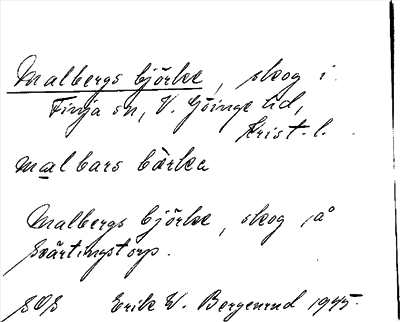 Malbergs björke, skog i
Finja sn, V. Göinge hd,
Krist. l.
malbars bärka
Malbergs björke, skog på
Svärtingstorp.
Erik W. Bergenrud 1945.